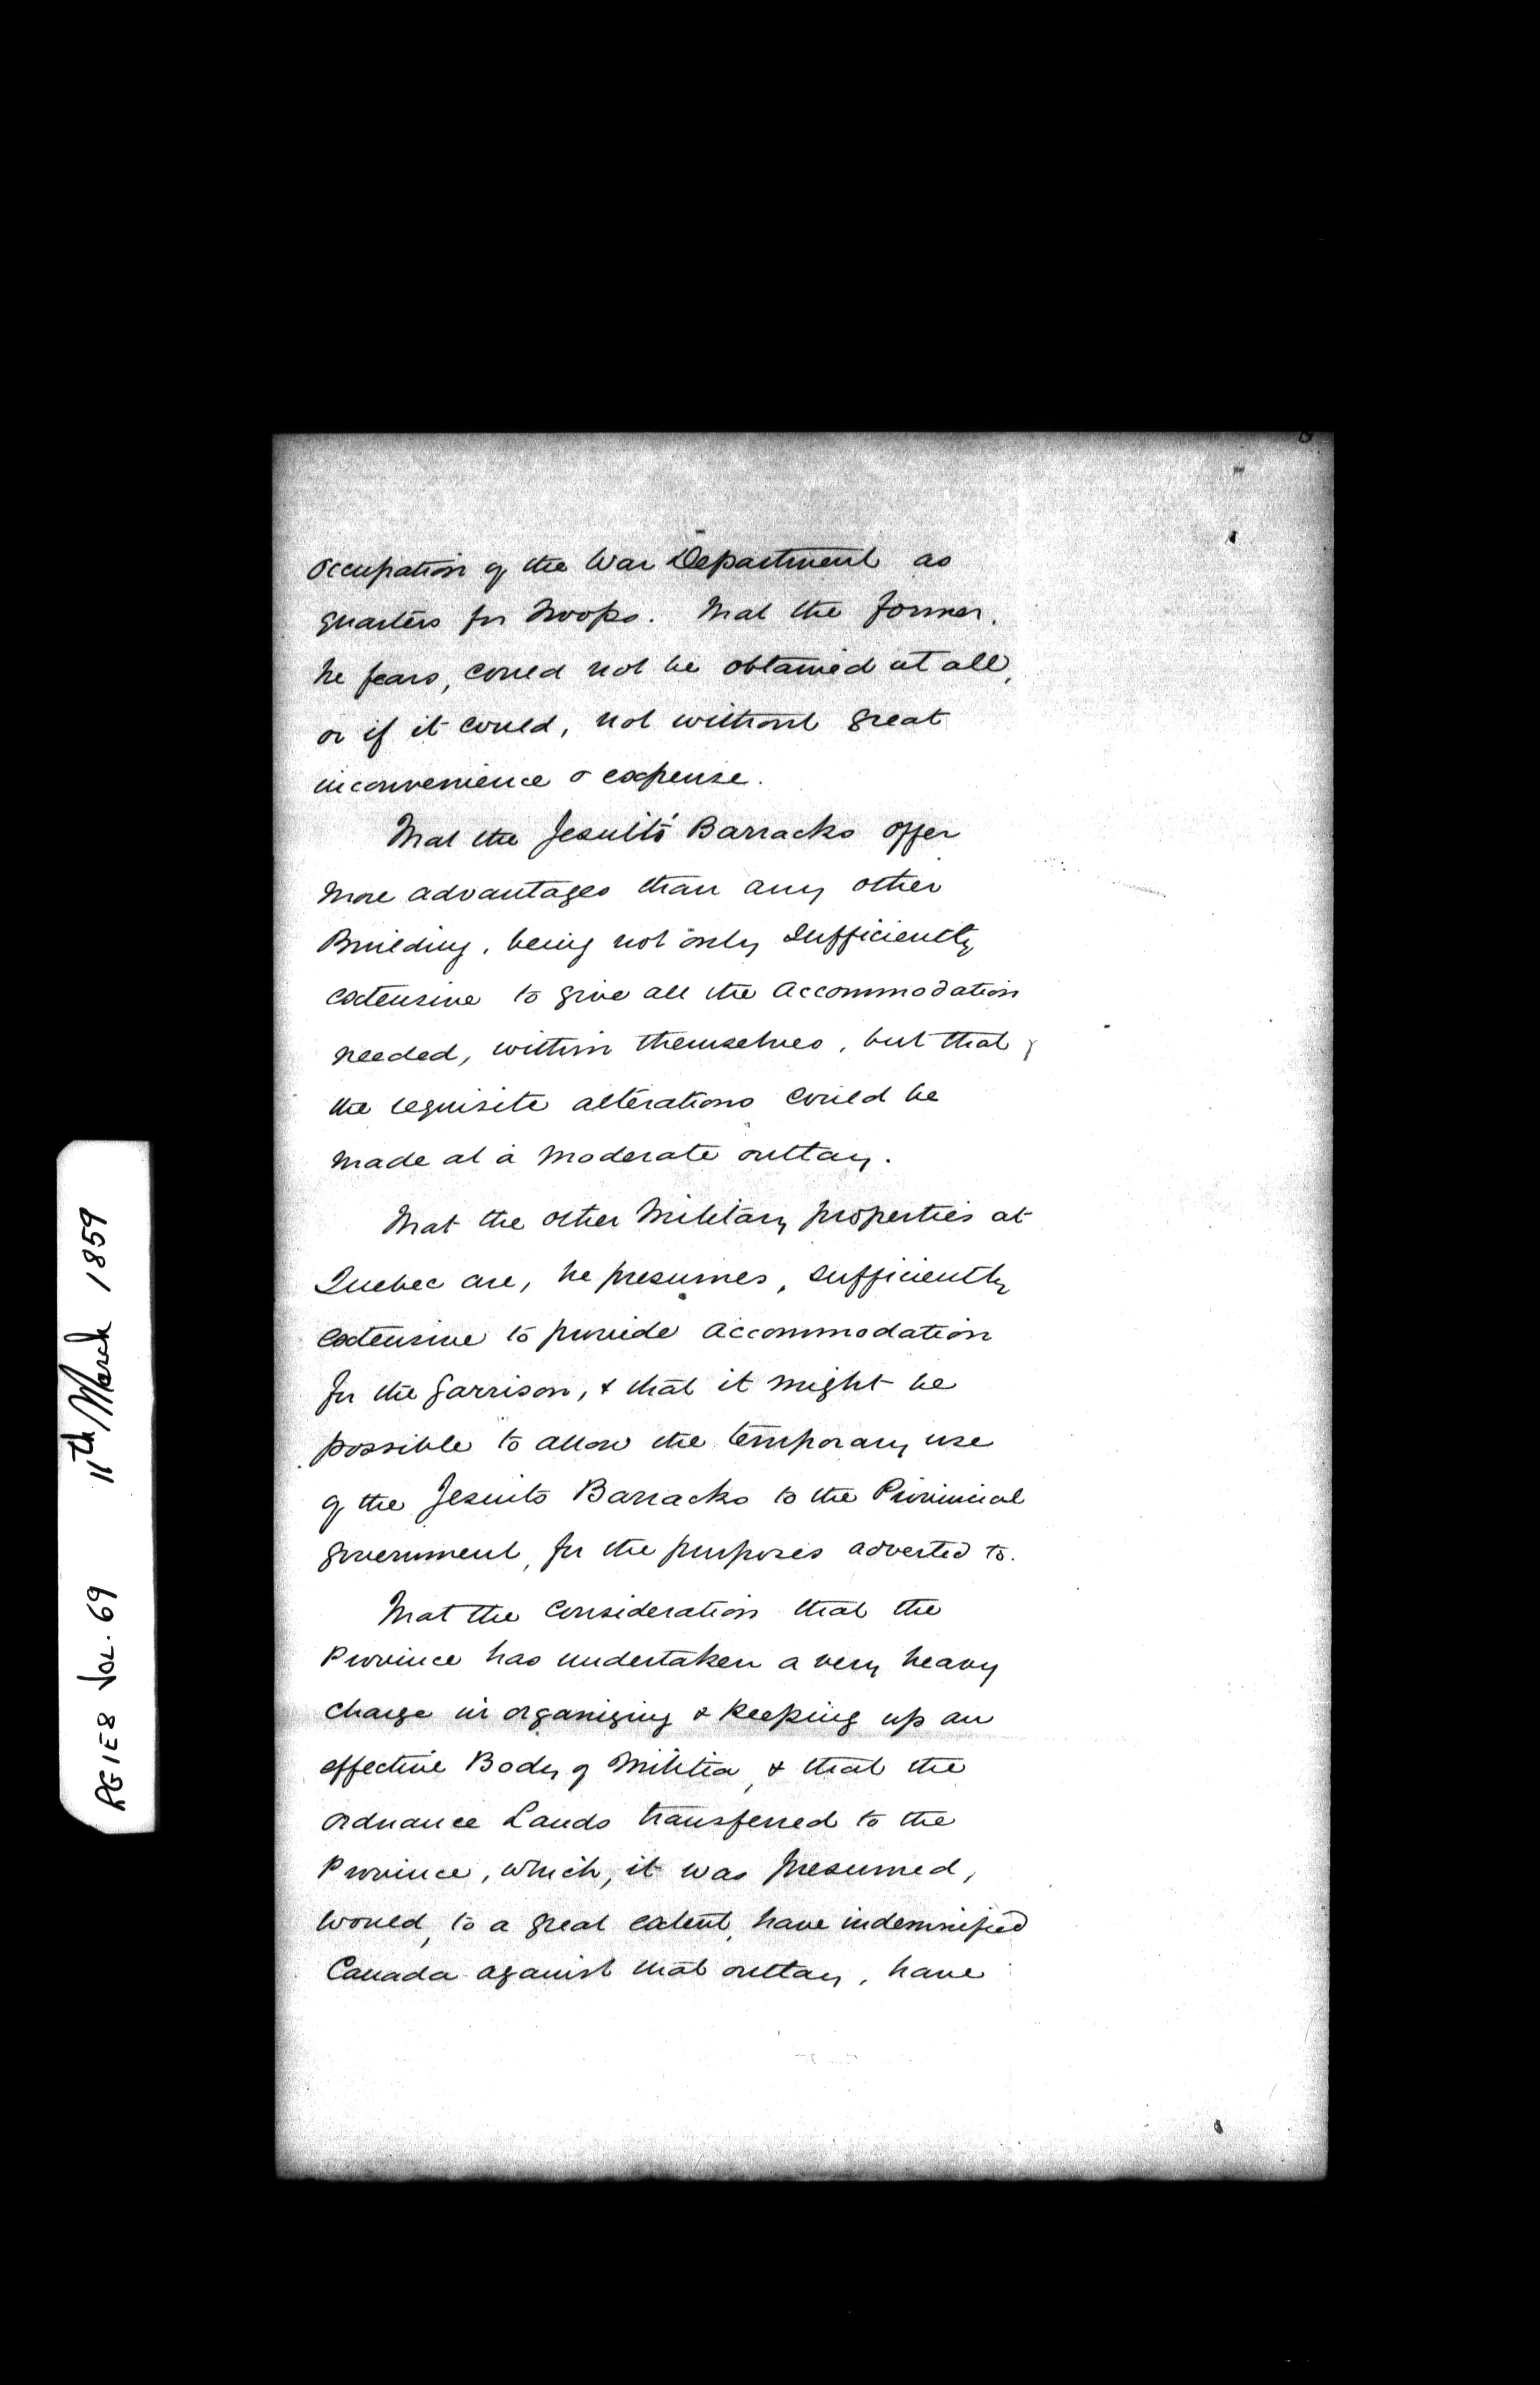 occupation of the War Department as
quarters for Troops. That the former,
he fears, could not be obtained at all,
or if it could, not without great
inconvenience & expense.
That the Jesuits' Barracks offer
more advantages than any other
Building, being not only sufficiently
extensive to give all the accommodation
needed, within themselves, but that
the requisite alterations could be
made at a moderate outlay.
That the other Military properties at
Quebec are, he presumes, sufficiently
extensive to provide accommodation
for the Garrison, & that it might be
possible to allow the temporary use
of the Jesuits Barracks to the Provincial
Government, for the purposes adverted to.
That the consideration that the
Province has undertaken a very heavy
charge in organizing & keeping up an
effective Body of Militia, & that the
Ordnance Lands transferred to the
Province, which, it was presumed,
would, to a great extent, have indemnified
Canada against that outlay, have
RG1E8 VOL. 69 11th March 1859